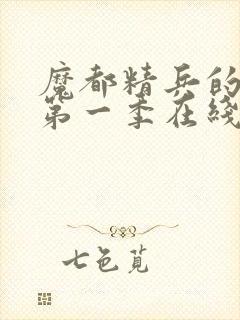 魔都精兵的
第一季在线
七色苋